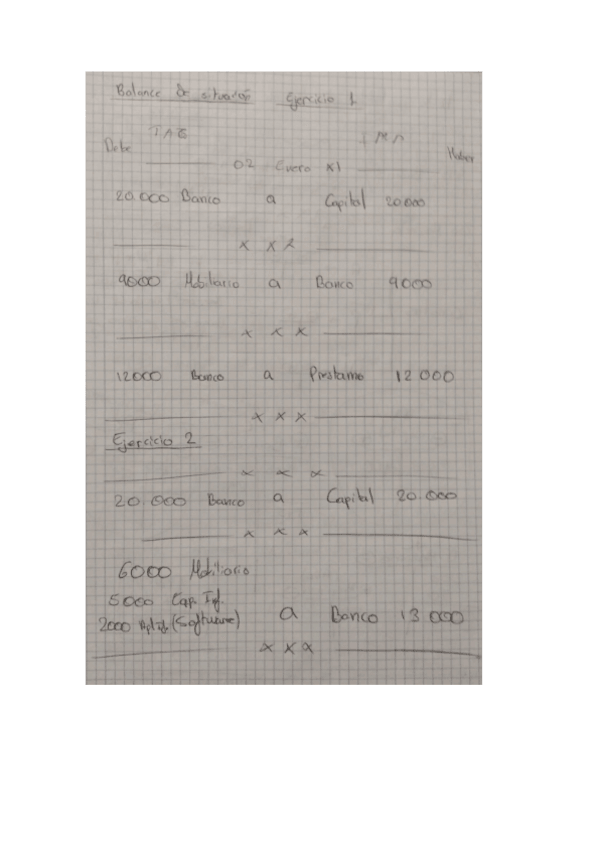 Balance de situación Ejercicio 1
Debe Haber
02 Enero X1
20.000 Banco a Capital 20.000
X X X
9000 Mobiliario a Banco 9000
X X X
12000 Banco a Prestamo 12 000
X X X
Ejercicio 2
X X X
20.000 Banco a Capital 20.000
X X X
6000 Mobiliario
5000 Eqp. Inf.
2000 Aplic (Software) a Banco 13 000
X X X